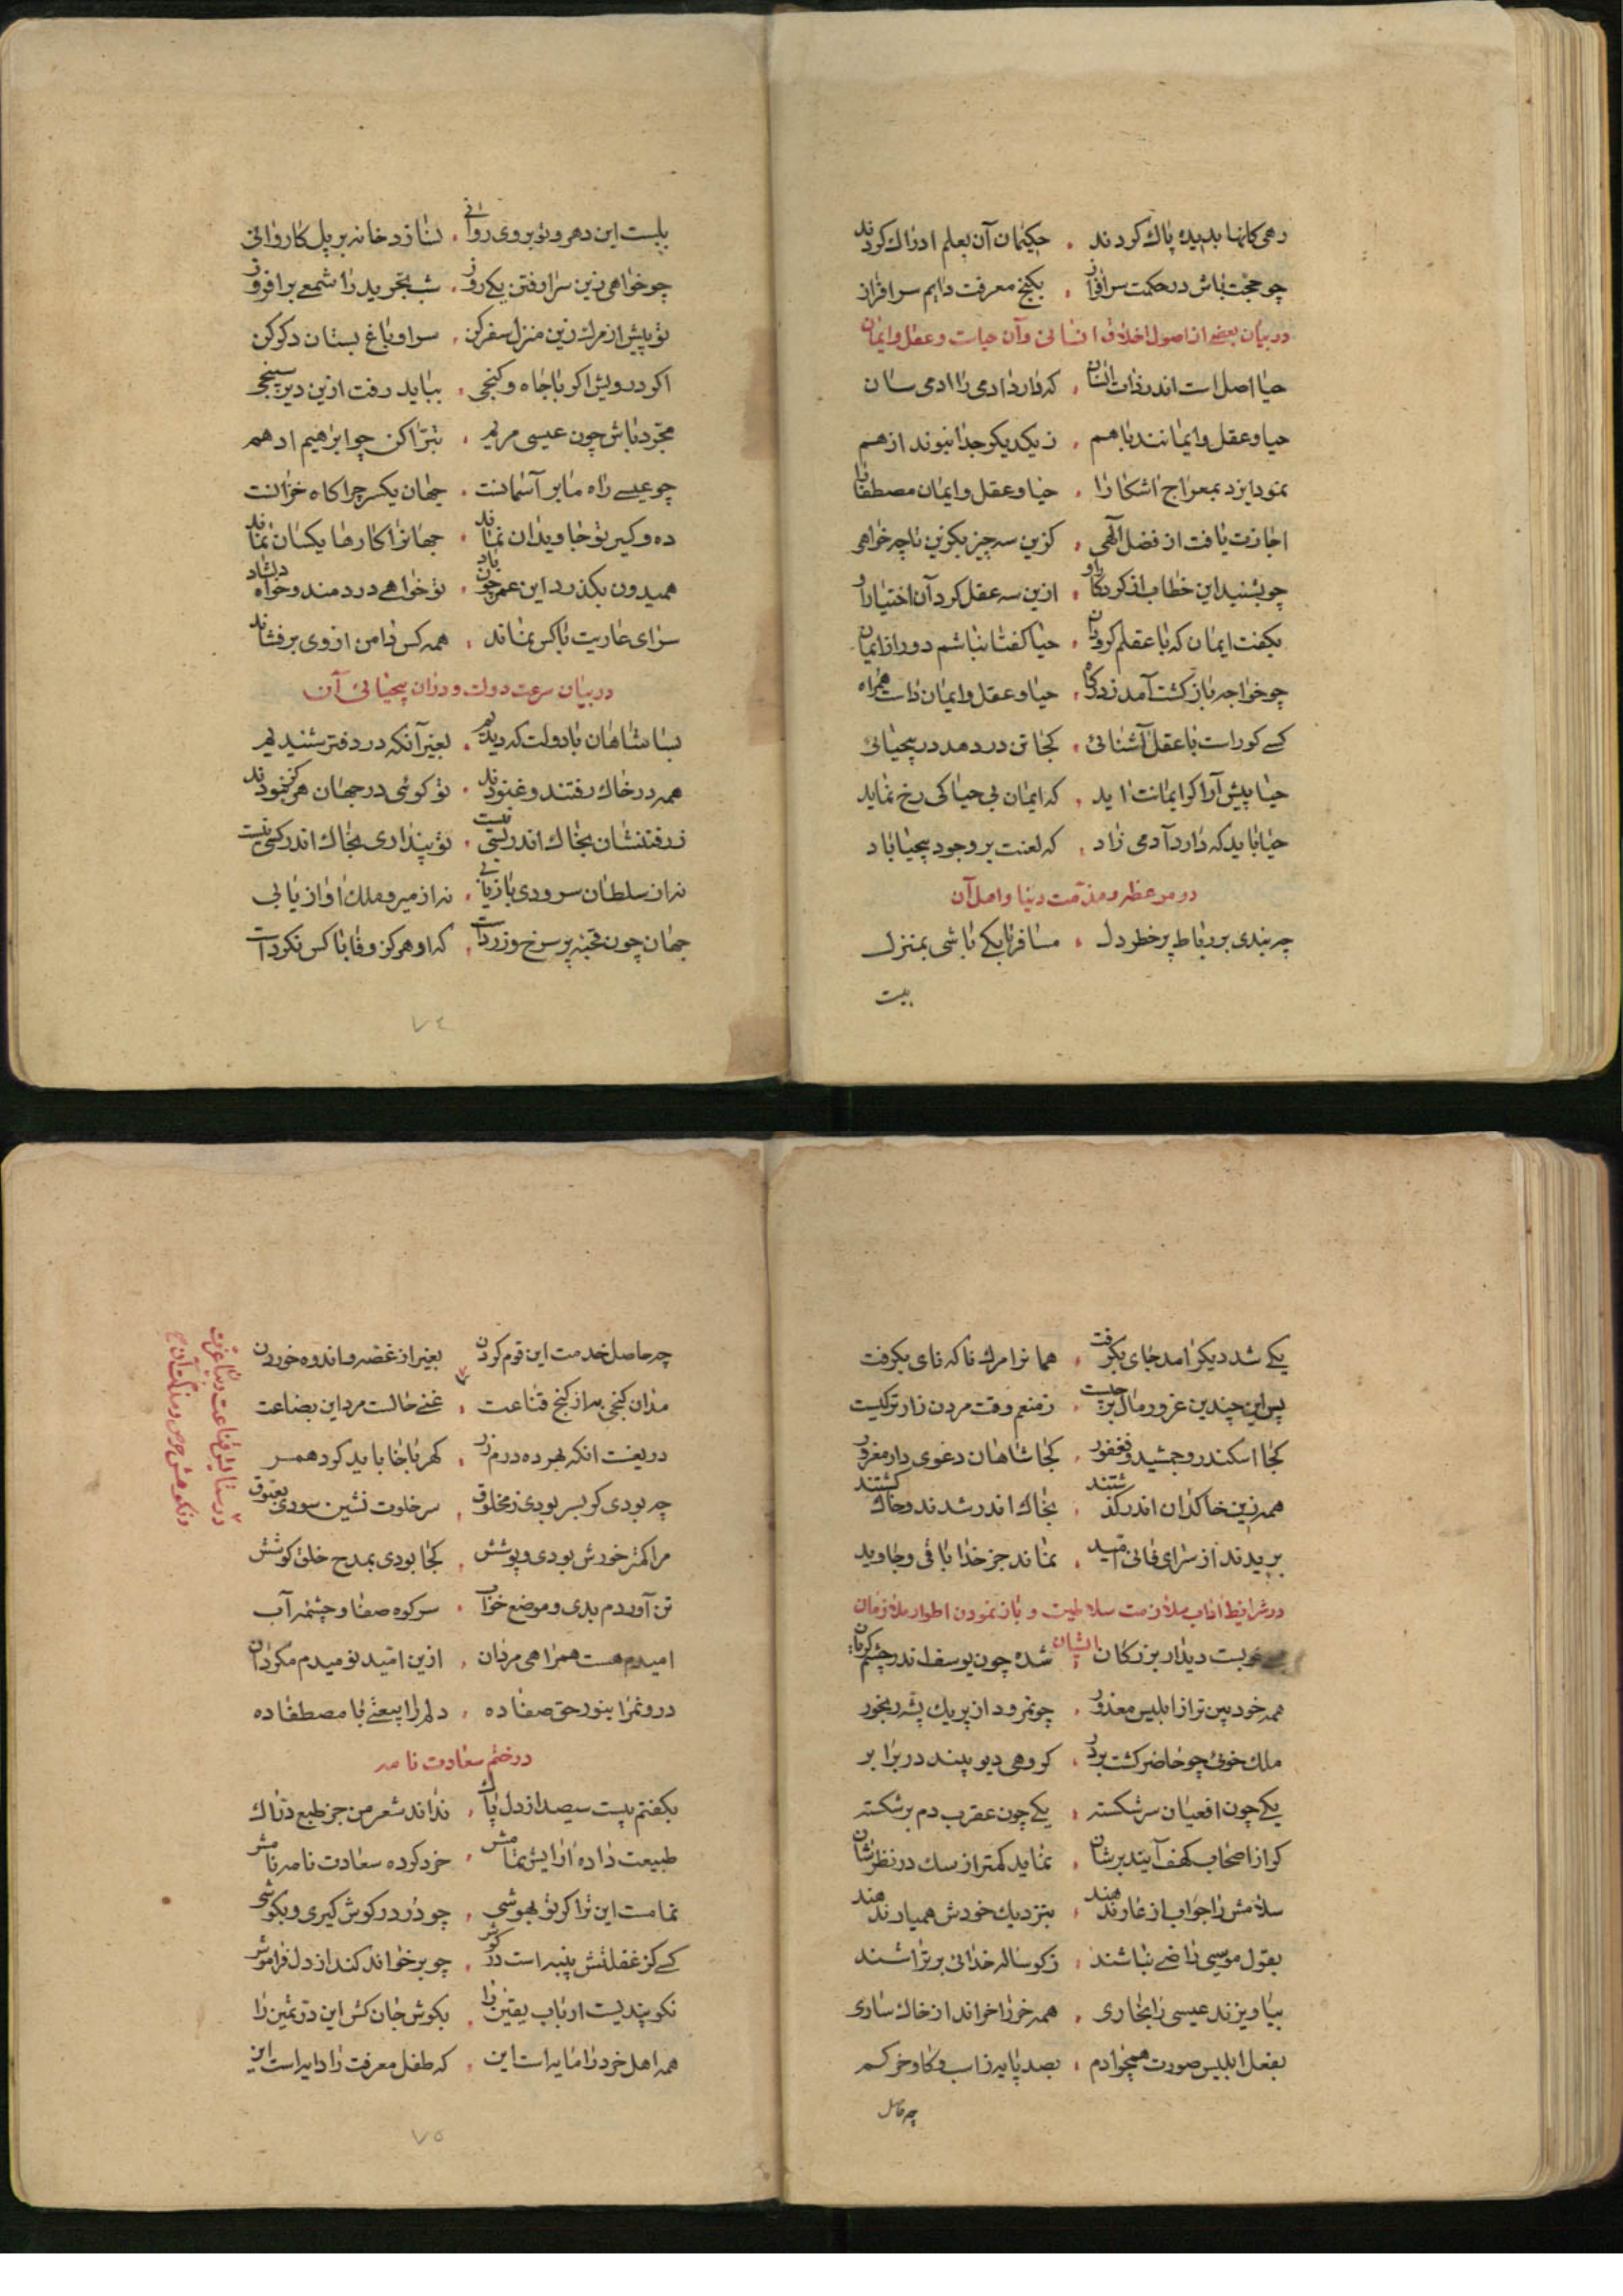 رهی کانها بدیده پاک کردند ، حکیمان آن بعلم ادراک کردند
چو حجت باش در حکمت سرافراز ، بکنج معرفت دایم سرافراز
در بیان بعضی از اصول اخلاق انسانی و آن حیات و عقل و ایمان
حیا اصل است اندر ذات انسان ، که دارد ادمی را ادمی سان
حیا و عقل و ایمانند با هم ، ز یکدیکر جدا نبوند از هم
نمود ایزد بمعراج اشکارا ، حیا و عقل و ایمان مصطفا را
اجازت یافت از فضل آلهی ، کزین سه چیز بکزین تا چه خواهی
چو بشنید این خطاب از کردکار او ، ازین سه عقل کرد آن اختیار او
بکفت ایمان که با عقلم کروان ، حیا کفتا نباشم دور از ایمان
چو خواجه باز کشت آمد ز درکاه ، حیا و عقل و ایمان داشت همراه
کسی کو راست با عقل آشنائی ، کجا تن در دهد در بیحیائی
حیا پیش آر اکر ایمانت اید ، که ایمان بی حیا کی رخ نماید
حیا باید که دارد آدمی زاد ، که لعنت بر وجود بیحیا باد
در موعظه و مذمت دنیا و اهل آن
چه بندی بر رباط پر خطر دل ، مسافر تا یکی باشی بمنزل
پلست
پلست این دهر و تو بر وی روانی ، نسازد خانه بر پل کاروانی
چو خواهی زین سرا رفتن یکی روز ، شب تجرید را شمعی برافروز
تو پیش از مرک زین منزل سفر کن ، سرا و باغ بستان دکر کن
اکر درویش اکر با جاه و کنجی ، بباید رفت ازین دیر سپنجی
مجرد باش چون عیسی مریم ، تبرا کن چو ابراهیم ادهم
چو عیسی راه ما بر آسمانست ، جهان یکسر چراکاه خرانست
ده و کیر تو جاویدان نماند ، جهانرا کارها یکسان نماند
همیدون بکذرد این عمر چون باد ، تو خواهی دردمند و خواه دلشاد
سرای عاریت با کس نماند ، همه کس دامن از وی برفشاند
در بیان سرعت دولت دوران و بیحیائی آن
بسا شاهان با دولت که دیدیم ، بغیر آنکه در دفتر شنیدیم
همه در خاک رفتند و غنودند ، تو کوئی در جهان هرکز نبودند
ز رفتنشان بخاک اندر بسی نیست ، تو پنداری بخاک اندر کسی نیست
نه از سلطان سرودی باز یابی ، نه از میر و ملک اواز یابی
جهان چون قحبه پر سرخ و زردست ، که او هرکز وفا با کس نکردست
۷۴
یکی شد دیکر امد جای بکرفت ، همانرا مرک ناکه نای بکرفت
پس این چندین غرور مال بر چیست ، ز منعم وقت مردن زارتر کیست
کجا اسکندر و جمشید و فغفور ، کجا شاهان دعوی دار مغرور
همه زین خاکدان اندر کذشتند ، بخاک اندر شدند و خاک کشتند
بریدند از سرای فانی امید ، نماند جز خدا باقی و جاوید
در شرایط اداب ملازمت سلاطین و باز نمودن اطوار ملازمان ایشان
غریبست دیدار بزرکان ، شده چون یوسف اندر چشم کرکان
همه خود بین تر از ابلیس مغرور ، چو نمرود از پر یک پشه رنجور
ملک خوئی چو حاضر کشت بر در ، کروهی دیو بیند در برابر
یکی چون افعیان سر شکسته ، یکی چون عقرب دم بر شکسته
کر از اصحاب کهف آیند برشان ، نماید کمتر از سک در نظرشان
سلامش را جواب از عار ندهند ، بنزدیک خودش هم یار ندهند
بقول موسی راضی نباشند ، ز کوساله خدائی بر تراشند
بیاویزند عیسی را بخاری ، همه خر را خرانند از خاکساری
بفعل ابلیس صورت همچو ادم ، بصد پایه ز اسب و کاو و خر کم
چه حاصل
چه حاصل خدمت این قوم کردن ، بغیر از غصه و اندوه خوردن
مدان کنجی به از کنج قناعت ، غنی حالست مرد این بضاعت
دریغست انکه بهر ده درم زر ، کهر با خا باید کرد همسر
چه بودی کو بسر بودی ز مخلوق ، سر خلوت نشین سودی بعیوق
مرا کمتر خورش بودی و پوشش ، کجا بودی بمدح خلق کوشش
تن آوردم بدی و موضع خواب ، سر کوه صفا و چشمه آب
امیدم هست همراهی مردان ، ازین امید نومیدم مکردان
درونمرا بنور حق صفا ده ، دلم را بیعتی با مصطفا ده
در ختم سعادت نامه
بکفتم بیست سیصد از دل پاک ، نداند شعر من جز طبع دراک
طبیعت داده ارایش تمامش ، خرد کرده سعادت نامه نامش
تمامست این ترا کر تو بهوشی ، چو در در کوش کیری و بکوشی
کسی کز غفلتش پنبه است در کوش ، چو برخواند کند از دل فراموش
نکو پندیست ارباب یقین را ، بکوش جان کش این در ثمین را
همه اهل خرد را مایه است این ، که طفل معرفت را دایه است این
۷۵
در ستایش قناعت و غزت
ونکوهش حرص و مذلت آن